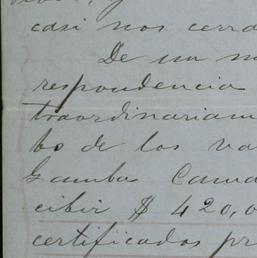 casi nos cerra
De un m
respondencia
traordinariam
bo de los va
Gamba Cama
cibir $ 420,0
certificados pr